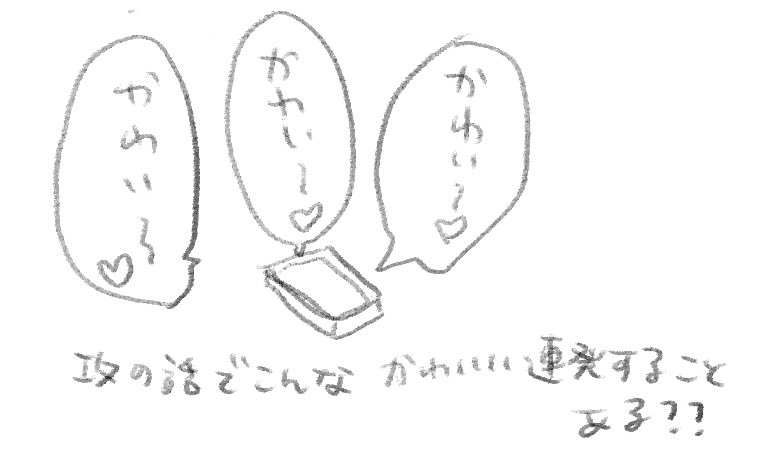 かわい〜♡
かわい〜♡
かわい〜♡
攻の話でこんな かわいい連発すること
ある??